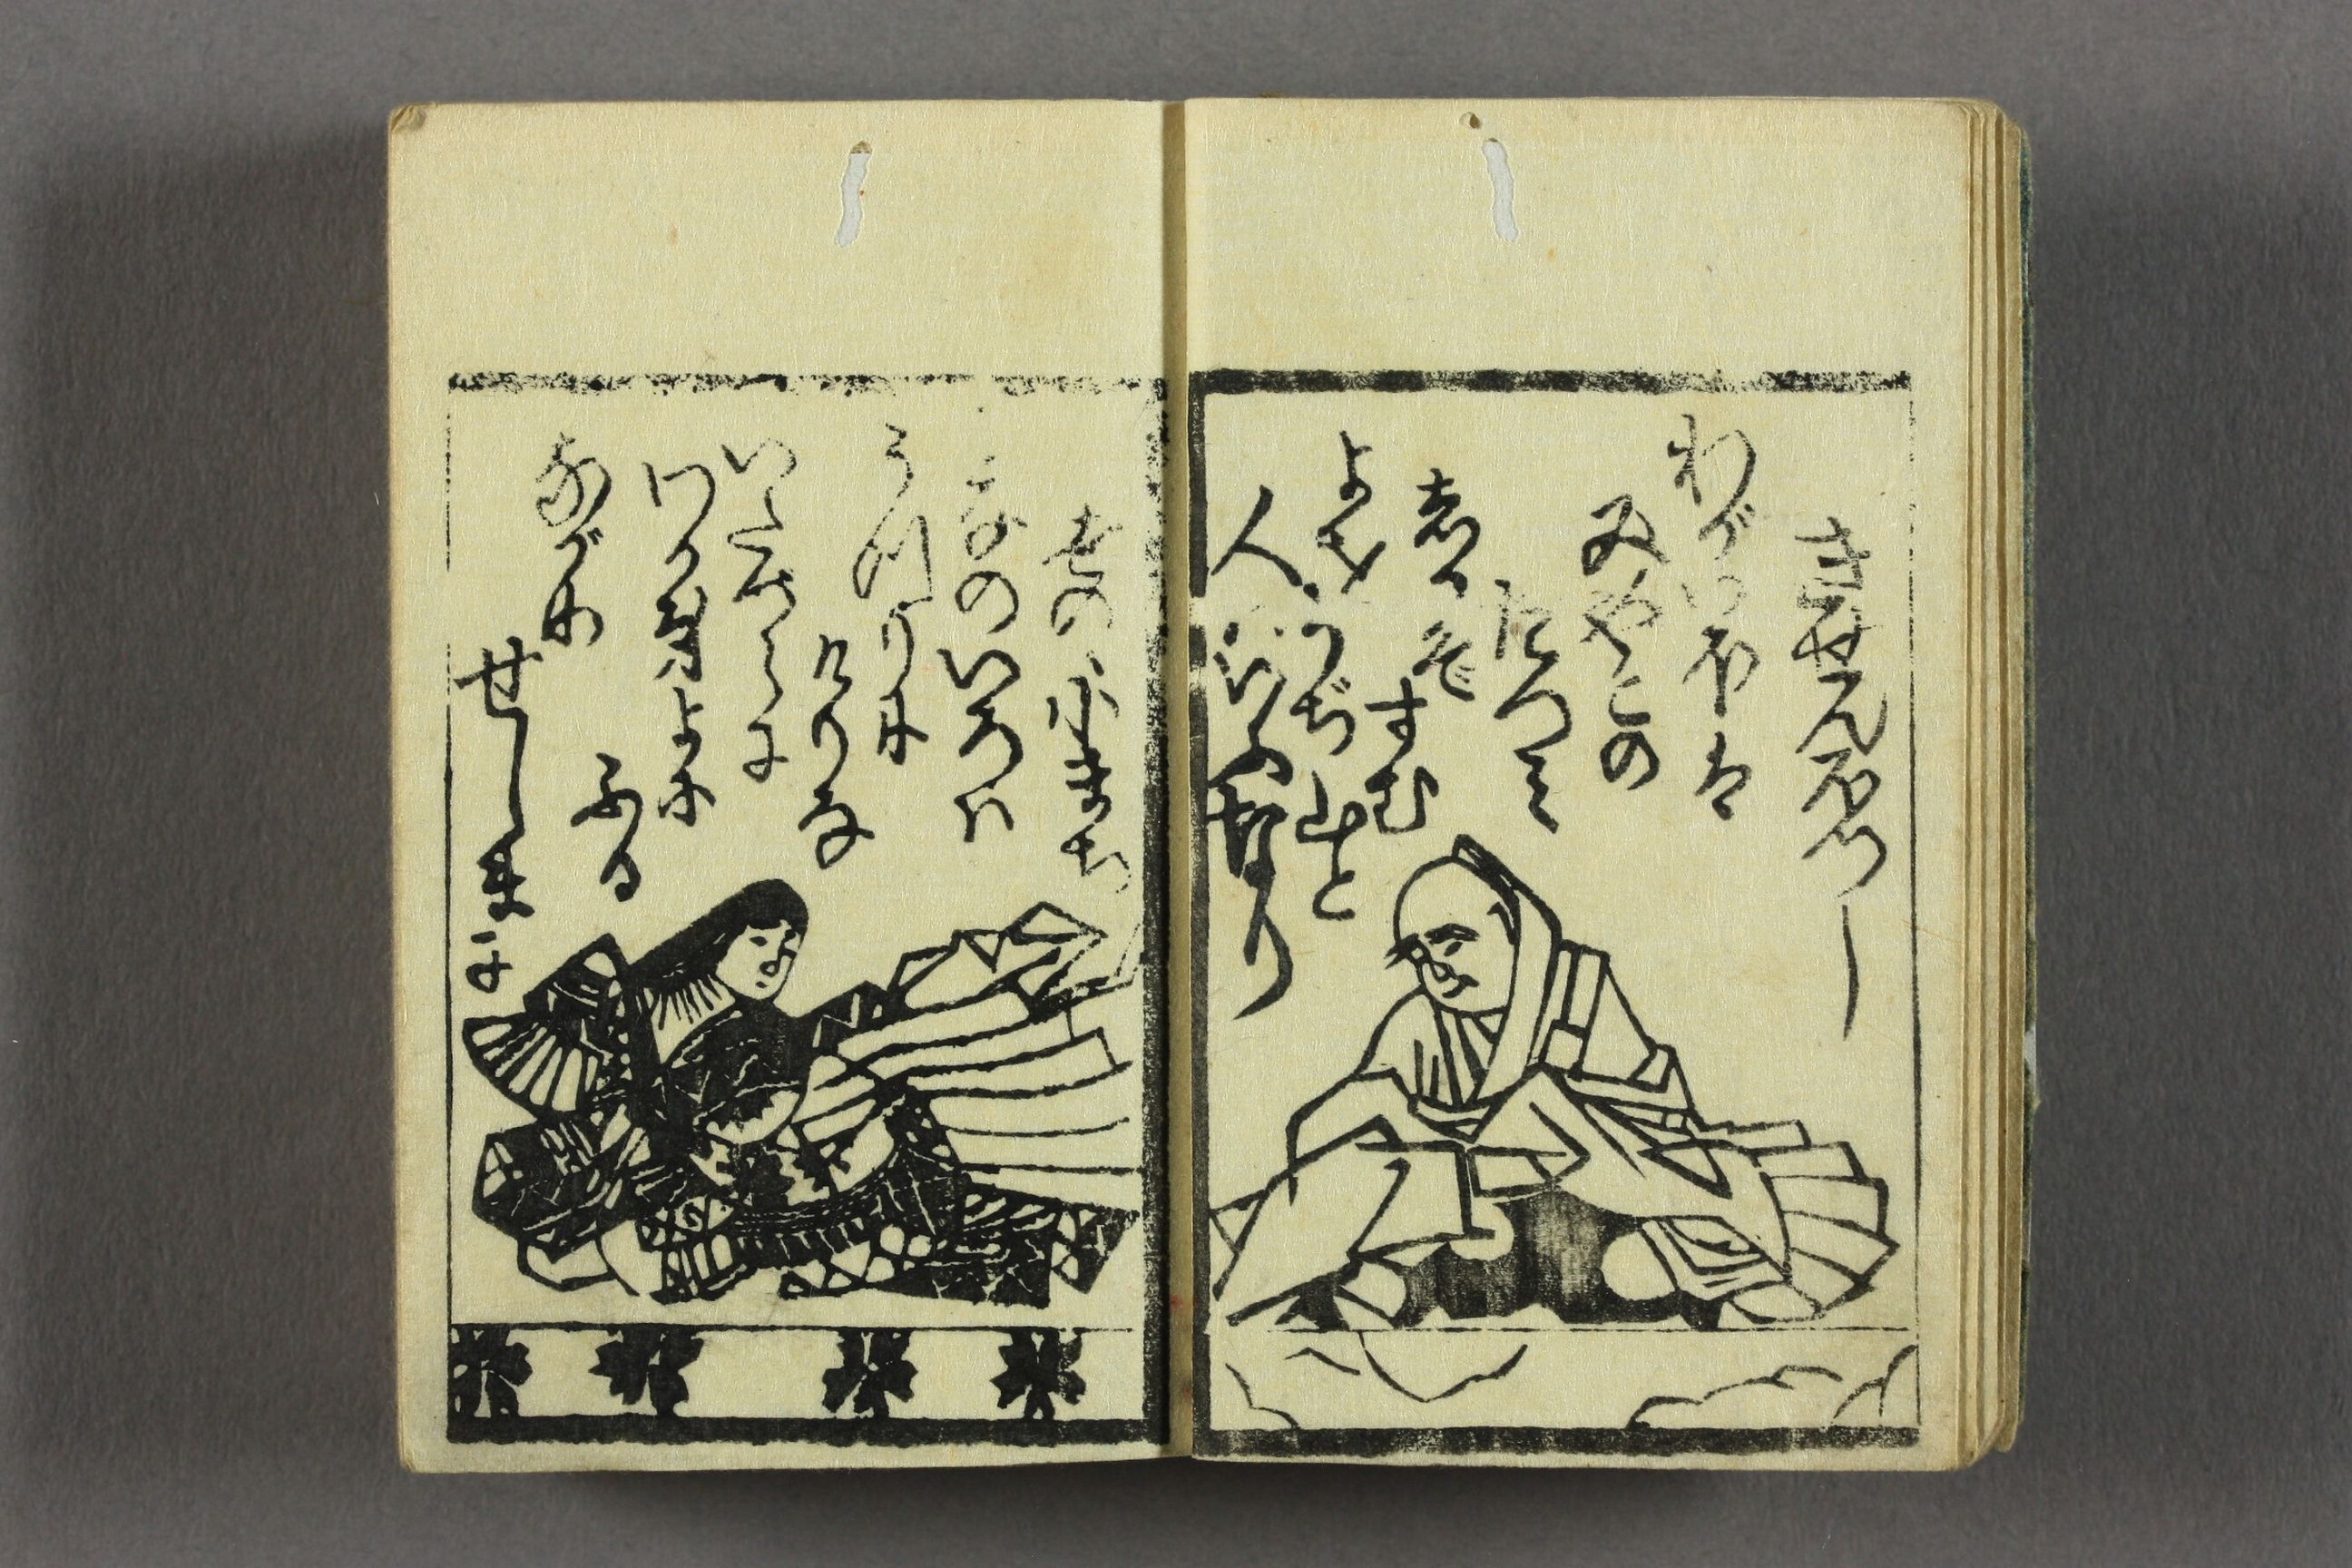 きせんほうし
わがいほは
みやこの
たつミ
志かぞ
すむ
よをうぢ山と
人はいふなり
をのゝ小まち
花のいろハ
うつりに
けりな
いたづらに
わか身よに
ふる
ながめ
せしまに